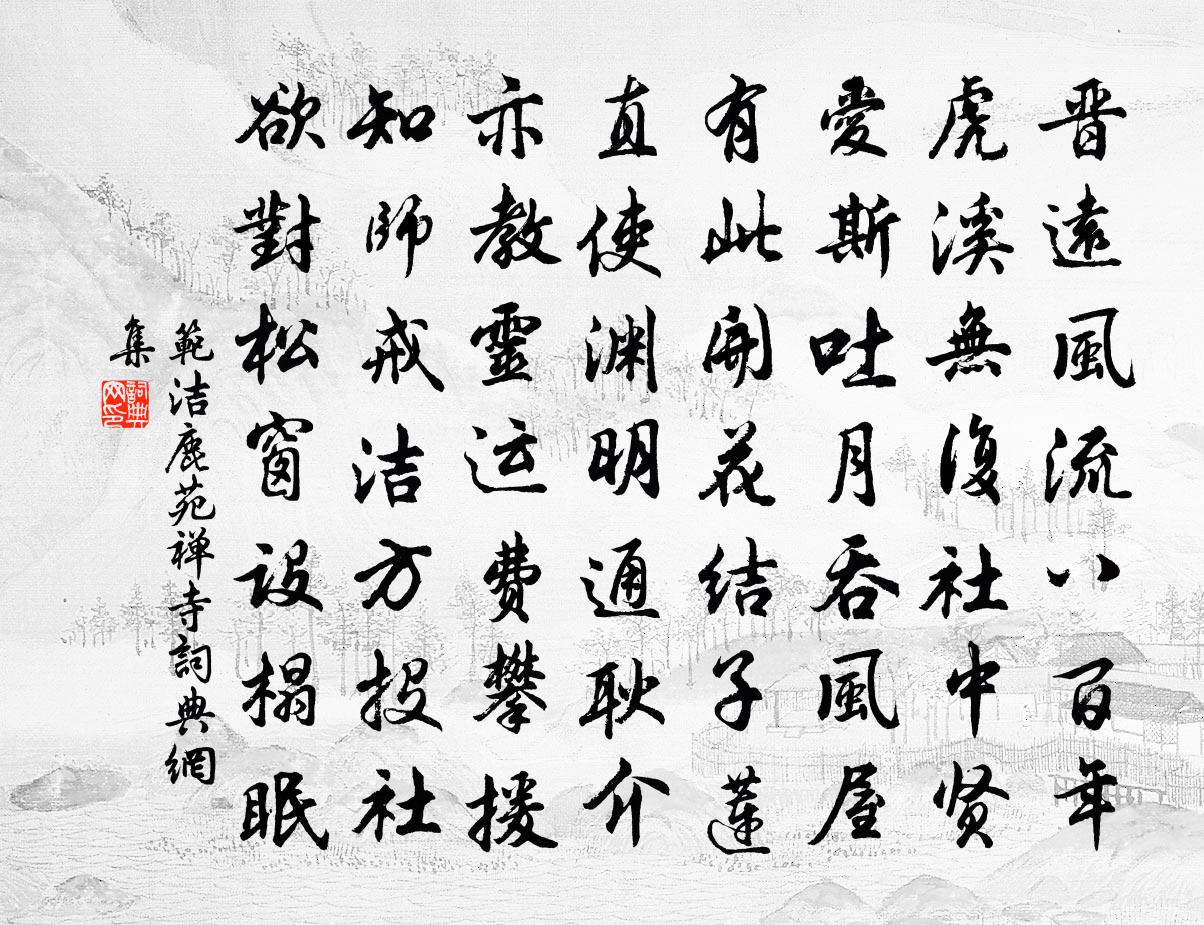 晋遠風流八百年
虎溪無復社中贤
愛斯吐月吞風屋
有此開花结子蓮
直使渊明通耿介
亦教靈运費攀援
知師戒洁方投社
欲對松窗設榻眠
範洁鹿苑禅寺詞典網
集
詞典网印